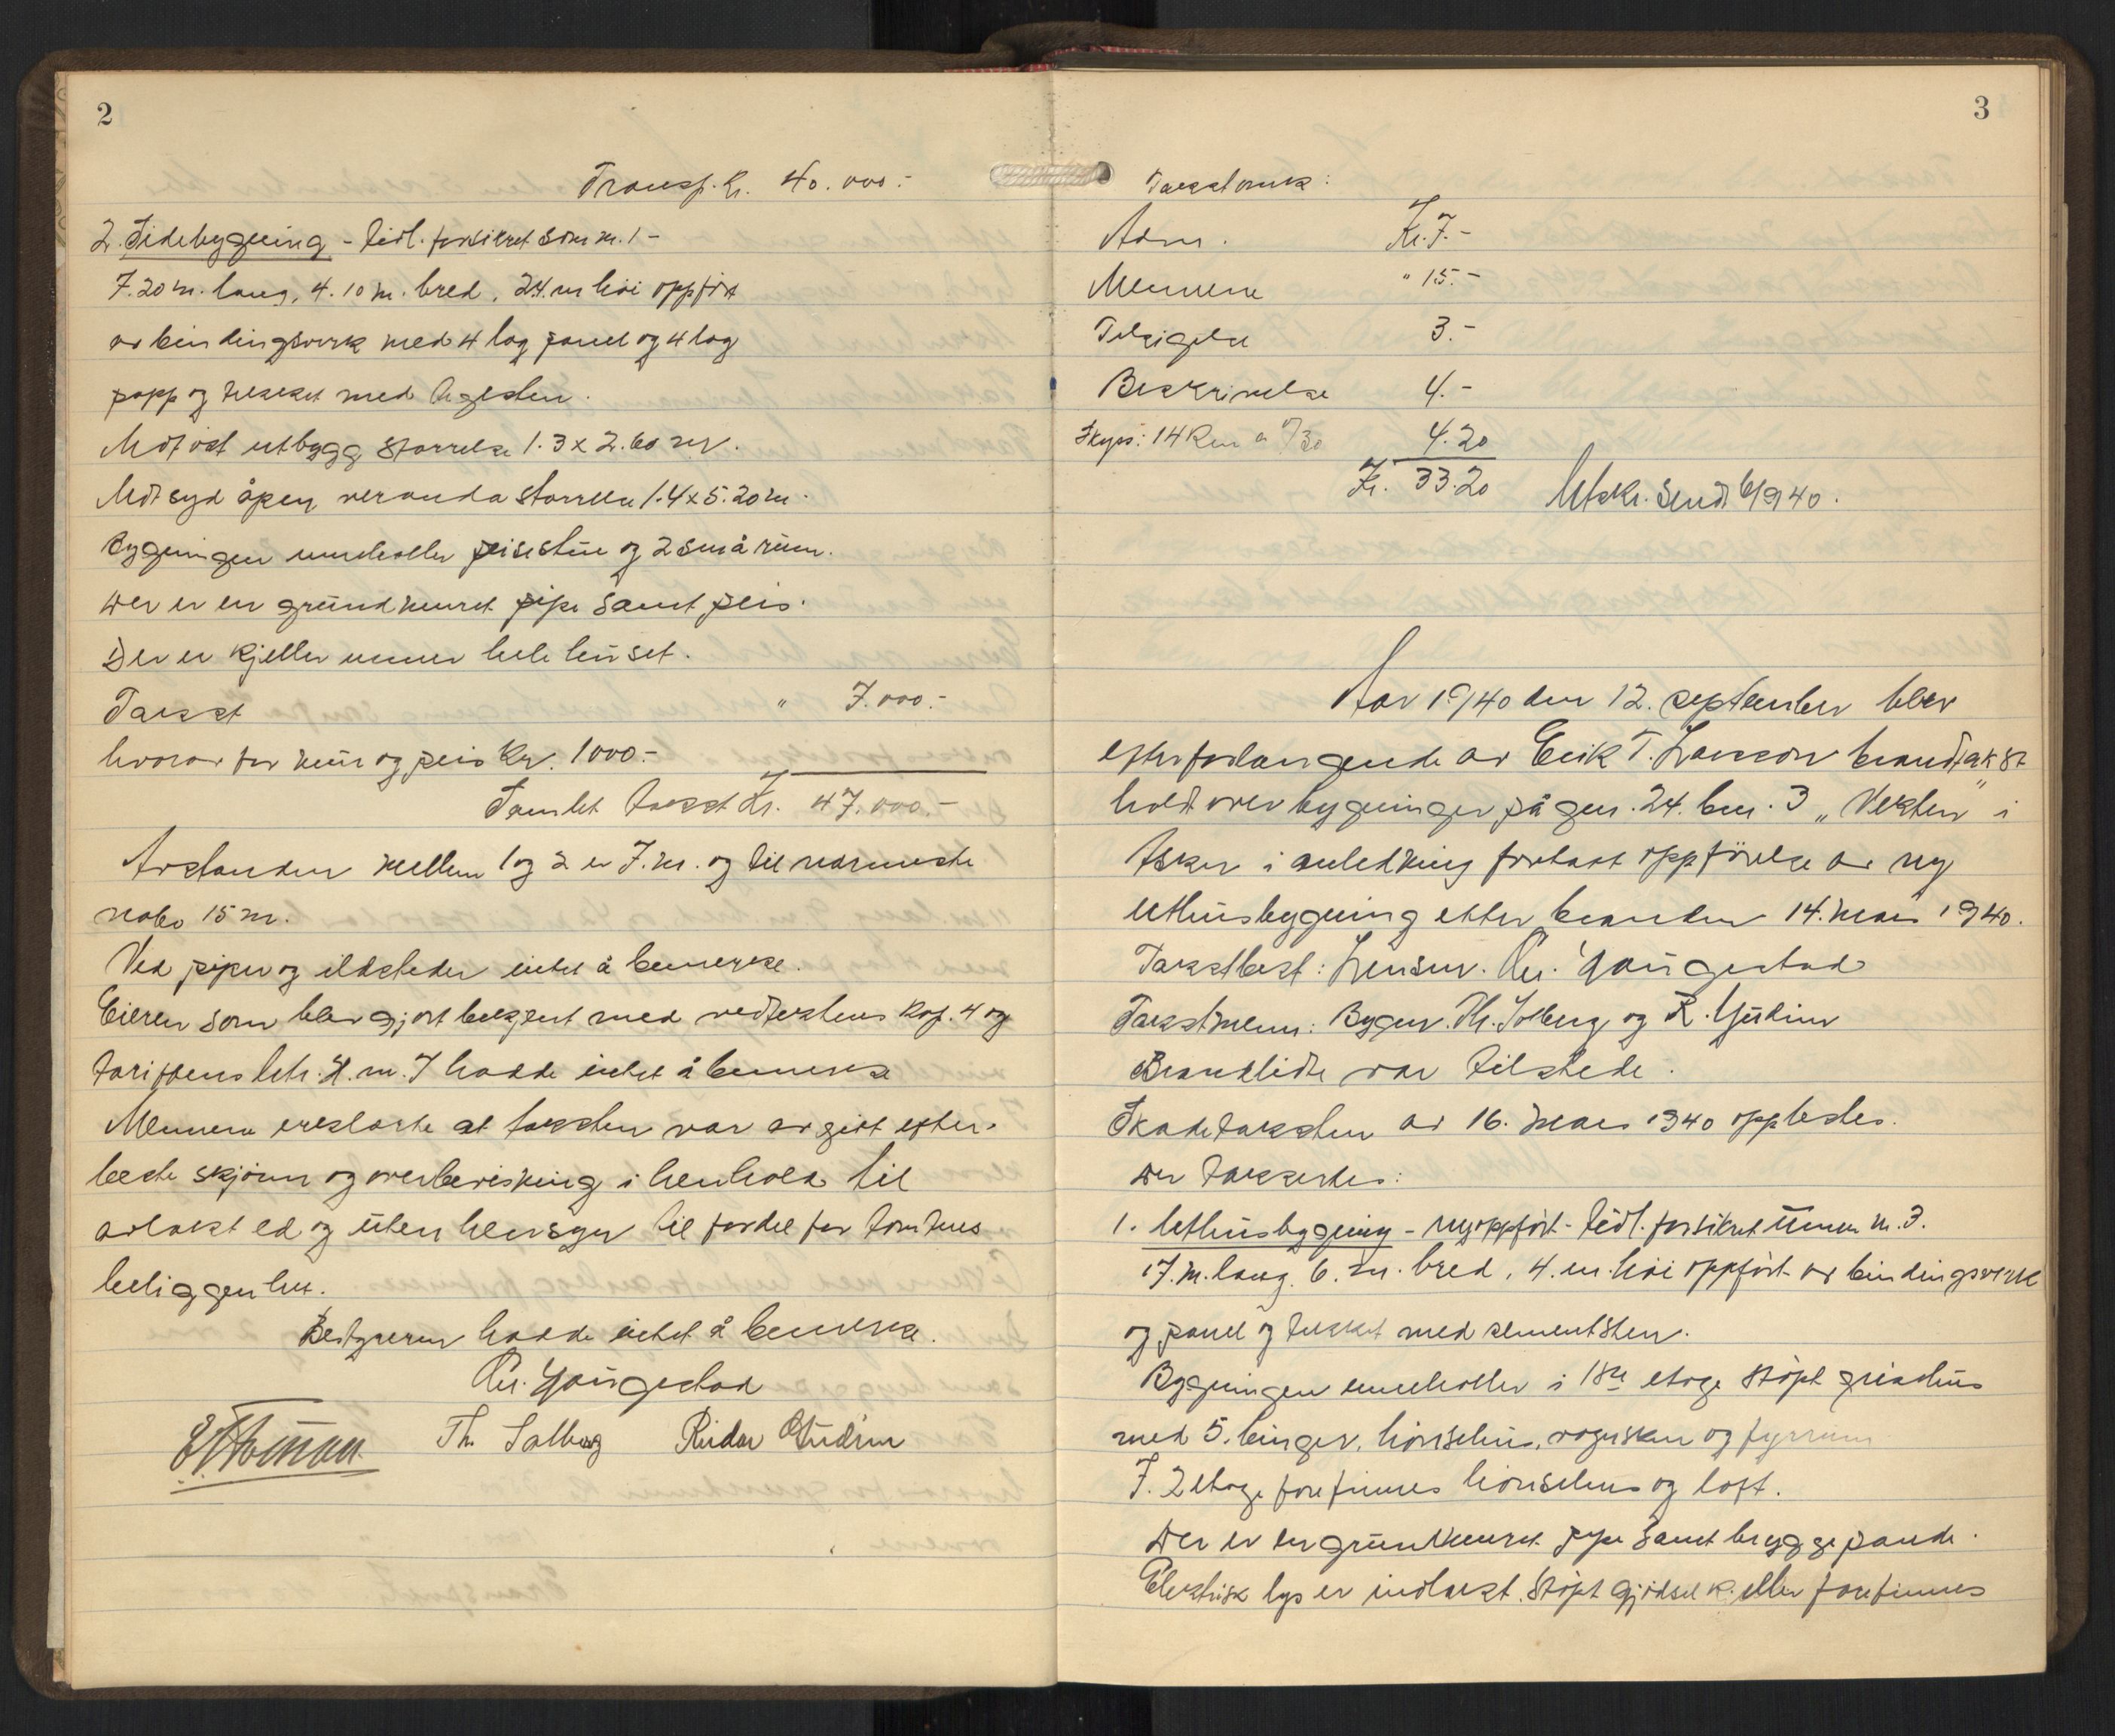 2
Transp. Kr. 40.000.-
2. Sidebygning - tidl. forsikret som nr. 1 -
7.20 m. lang, 4.10 m. bred, 2.4. m høi oppført
av bindingsverk med 4 lag panel og 4 lag
papp og tekket med teglsten.
Mot øst utbygg størrelse 1.3 x 2.60 m.
Mot syd åpen veranda størrelse 1.4 x 5.20 m.
Bygningen inneholder peisestue og 2 små rum.
Der er en grundmuret pipe samt peis.
Der er kjeller under hele huset.
Takst " 7.000.-
hvorav for mur og peis Kr. 1000.-
Samlet takst Kr. 47.000.-
Avstanden mellem 1 og 2 er 7. m. og til nærmeste
nabo 15 m.
Ved piper og ildsteder intet å bemerke.
Eieren som blev gjort bekjent med vedtektens kap. 4 og
tariffens litr. H. nr. 7 hadde intet å bemerke
Mennene erklærte at taksten var avgitt efter
beste skjønn og overbevisning i henhold til
avlagt ed og uten hensyn til fordel for tomtens
beliggenhet.
Bestyreren hadde intet å bemerke.
Chr. Gaugestad
Th. Solberg Reidar Gudim
3
Takstomk:
Adm. Kr. 7.-
Mennene " 15.-
Tilsigelse 3.-
Beskrivelse 4.-
Skyss: 14 Km a 0/30 4.20
Kr. 33.20 Utskr. sendt 6/9 40.
Aar 1940 den 12. september blev
efter forlangende av Erik T. Larsson brandtakst
holdt over bygninger på gnr. 24. bnr. 3 „Vekten" i
Asker i anledning foretatt oppførelse av ny
uthusbygning efter branden 14. mars 1940.
Takstbest: Lensm. Chr. Gaugestad
Takstmenn: Bygm. Th. Solberg og R. Gudim
Brandlidte var tilstede.
Skadetaksten av 16. mars 1940 opplestes.
Der takseredes:
1. Uthusbygning - nyoppført - tidl. forsikret under nr. 3.
17. m. lang. 6. m. bred, 4. m. høi oppført av bindingsverk
og panel og tekket med sementsten.
Bygningen inneholder i 1ste etage støpt grisehus
med 5. binger, hønsehus, vognskur og fyrrum
I. 2 etage forefinnes hønsehus og loft.
Der er en grundmuret pipe samt bryggepande.
Elektrisk lys er indlagt. Støpt gjødselkjeller forefinnes